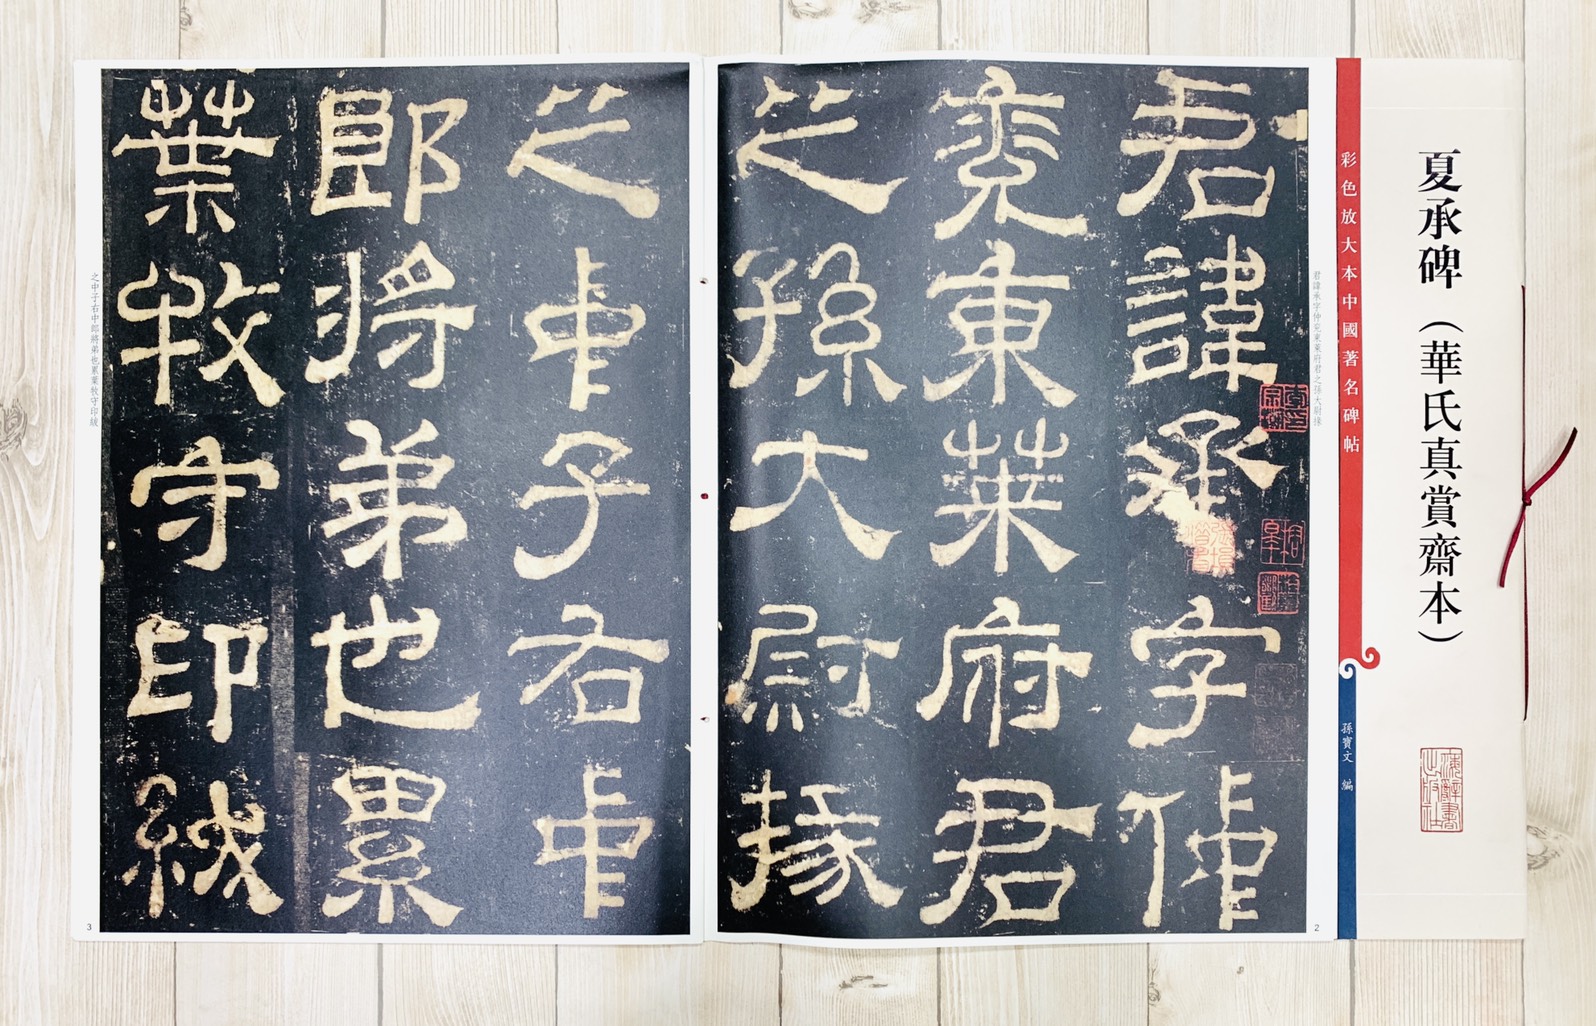 夏承碑（華氏真賞齋本）
彩色放大本中國著名碑帖
孫寶文　編
君諱承字仲兖東萊府君之孫大尉掾
君諱承字仲
兖東萊府君
之孫大尉掾
2
之中子右中
郎將弟也累
葉牧守印紱
之中子右中郎將弟也累葉牧守印紱
3